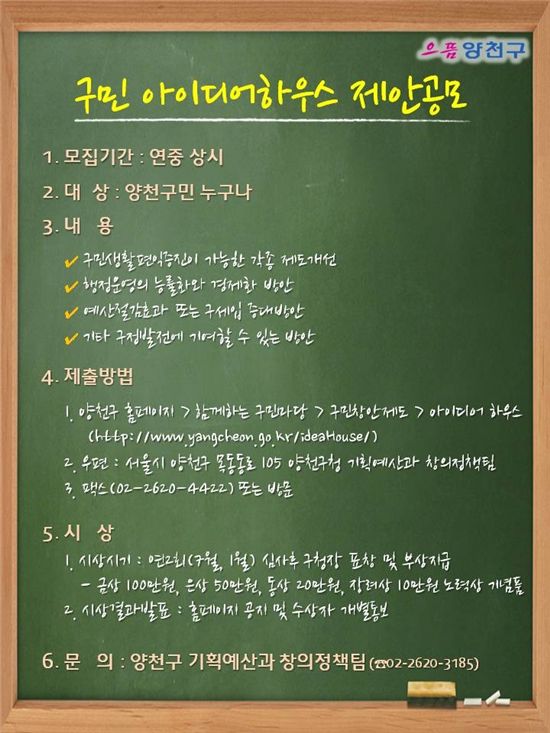 으뜸 양천구
구민 아이디어하우스 제안공모
1. 모집기간 : 연중 상시
2. 대 상 : 양천구민 누구나
3. 내 용
✔ 구민생활편익증진이 가능한 각종 제도개선
✔ 행정운영의 능률화와 경제화 방안
✔ 예산절감효과 또는 구세입 증대방안
✔ 기타 구정발전에 기여할 수 있는 방안
4. 제출방법
1. 양천구 홈페이지 > 함께하는 구민마당 > 구민창안제도 > 아이디어 하우스
(http://www.yangcheon.go.kr/ideaHouse/)
2. 우편 : 서울시 양천구 목동동로 105 양천구청 기획예산과 창의정책팀
3. 팩스(02-2620-4422) 또는 방문
5. 시 상
1. 시상시기 : 연2회(7월, 1월) 심사후 구청장 표창 및 부상지급
- 금상 100만원, 은상 50만원, 동상 20만원, 장려상 10만원 노력상 기념품
2. 시상결과발표 : 홈페이지 공지 및 수상자 개별통보
6. 문 의 : 양천구 기획예산과 창의정책팀 (☎02-2620-3185)